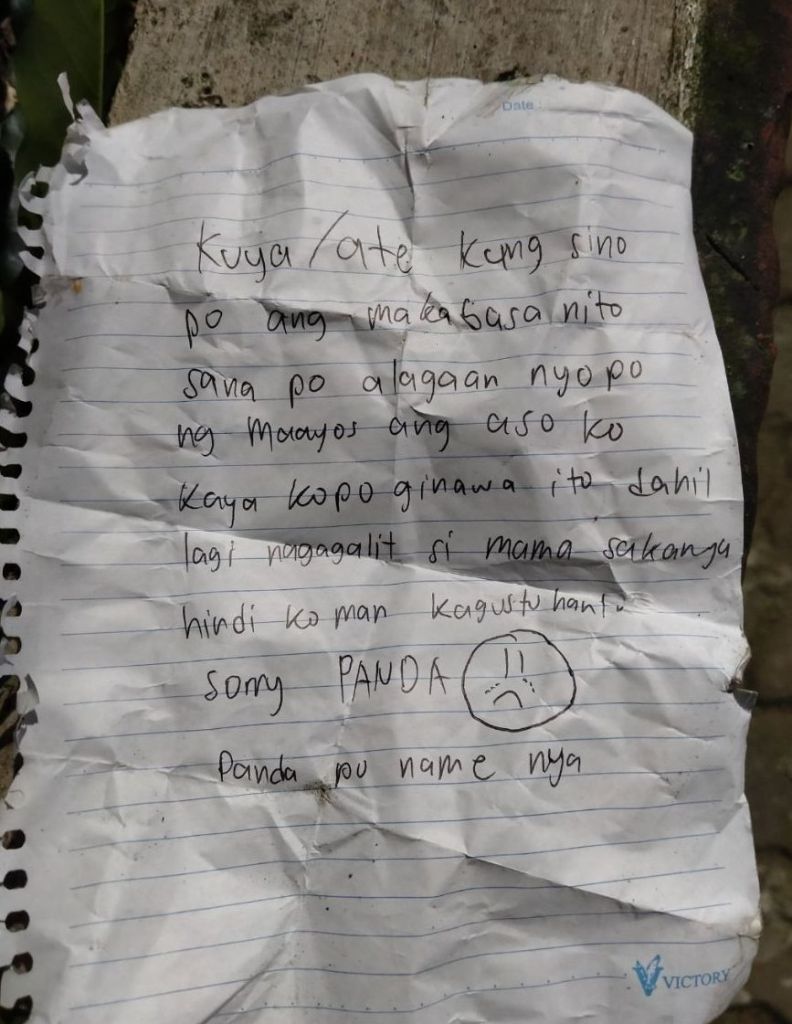 Date
Kuya/ate kung sino
po ang makabasa nito
sana po alagaan nyo po
ng maayos ang aso ko
kaya kopo ginawa ito dahil
lagi nagagalit si mama sakanya
hindi ko man kagustuhan
sorry PANDA
Panda po name nya
VICTORY